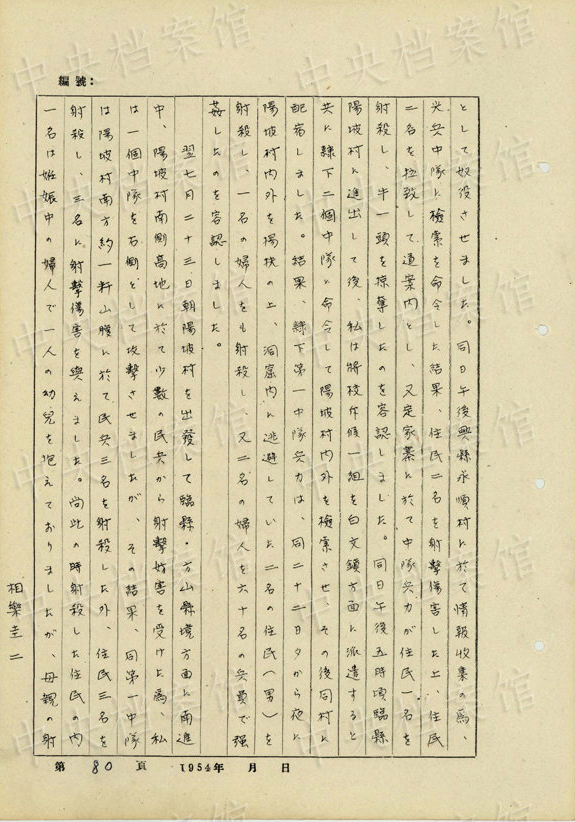 編號：
として奴役させました。同日午後興縣永順村に於て情報収集の為、
光兵中隊に檢索を命令した結果、住民二名を射撃傷害した上、住民
二名を拉致して道案内とし、又定家寨に於て中隊兵力が住民一名を
射殺し、牛一頭を掠奪したのを容認しました。同日午後五時頃臨縣
陽坡村に進出して後、私は将校斥候一組を白文鎮方面に派遣すると
共に隷下二個中隊に命令して陽坡村内外を檢索させ、その後同村に
配宿しました。結果、隷下第一中隊兵力は、同二十二日夕から夜に
陽坡村内外を掃蕩の上、洞窟内に逃避していた二名の住民（男）を
射殺し、一名の婦人をも射殺し、又二名の婦人を六十名の兵員で强
姦したのを容認しました。
翌七月二十三日朝陽坡村を出發して臨縣・方山縣境方面に南進
中、陽坡村南側高地に於て少数の民兵から射撃妨害を受けた為、私
は一個中隊を右側として攻撃させましたが、その結果、同第一中隊
は陽坡村南方約一粁山腹に於て民兵三名を射殺した外、住民三名を
射殺し、三名に射撃傷害を與えました。尚此の時射殺した住民の内
一名は妊娠中の婦人で一人の幼児を抱えておりましたが、母親の射
相樂圭二
第 80 頁 1954年 月 日
中央档案馆